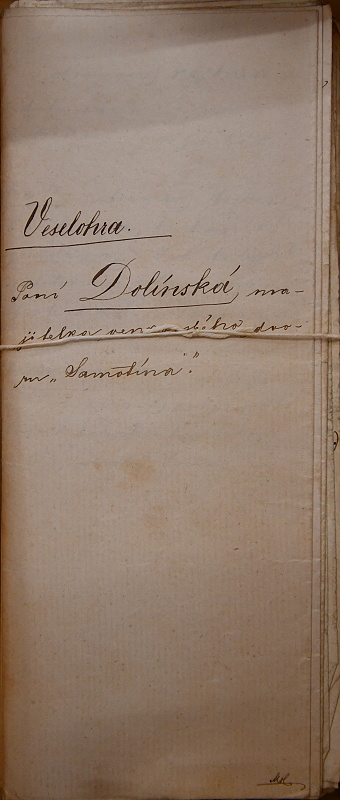 Veselohra.
Paní Dolínská, ma-
jitelka dvo-
ru „Samotína".